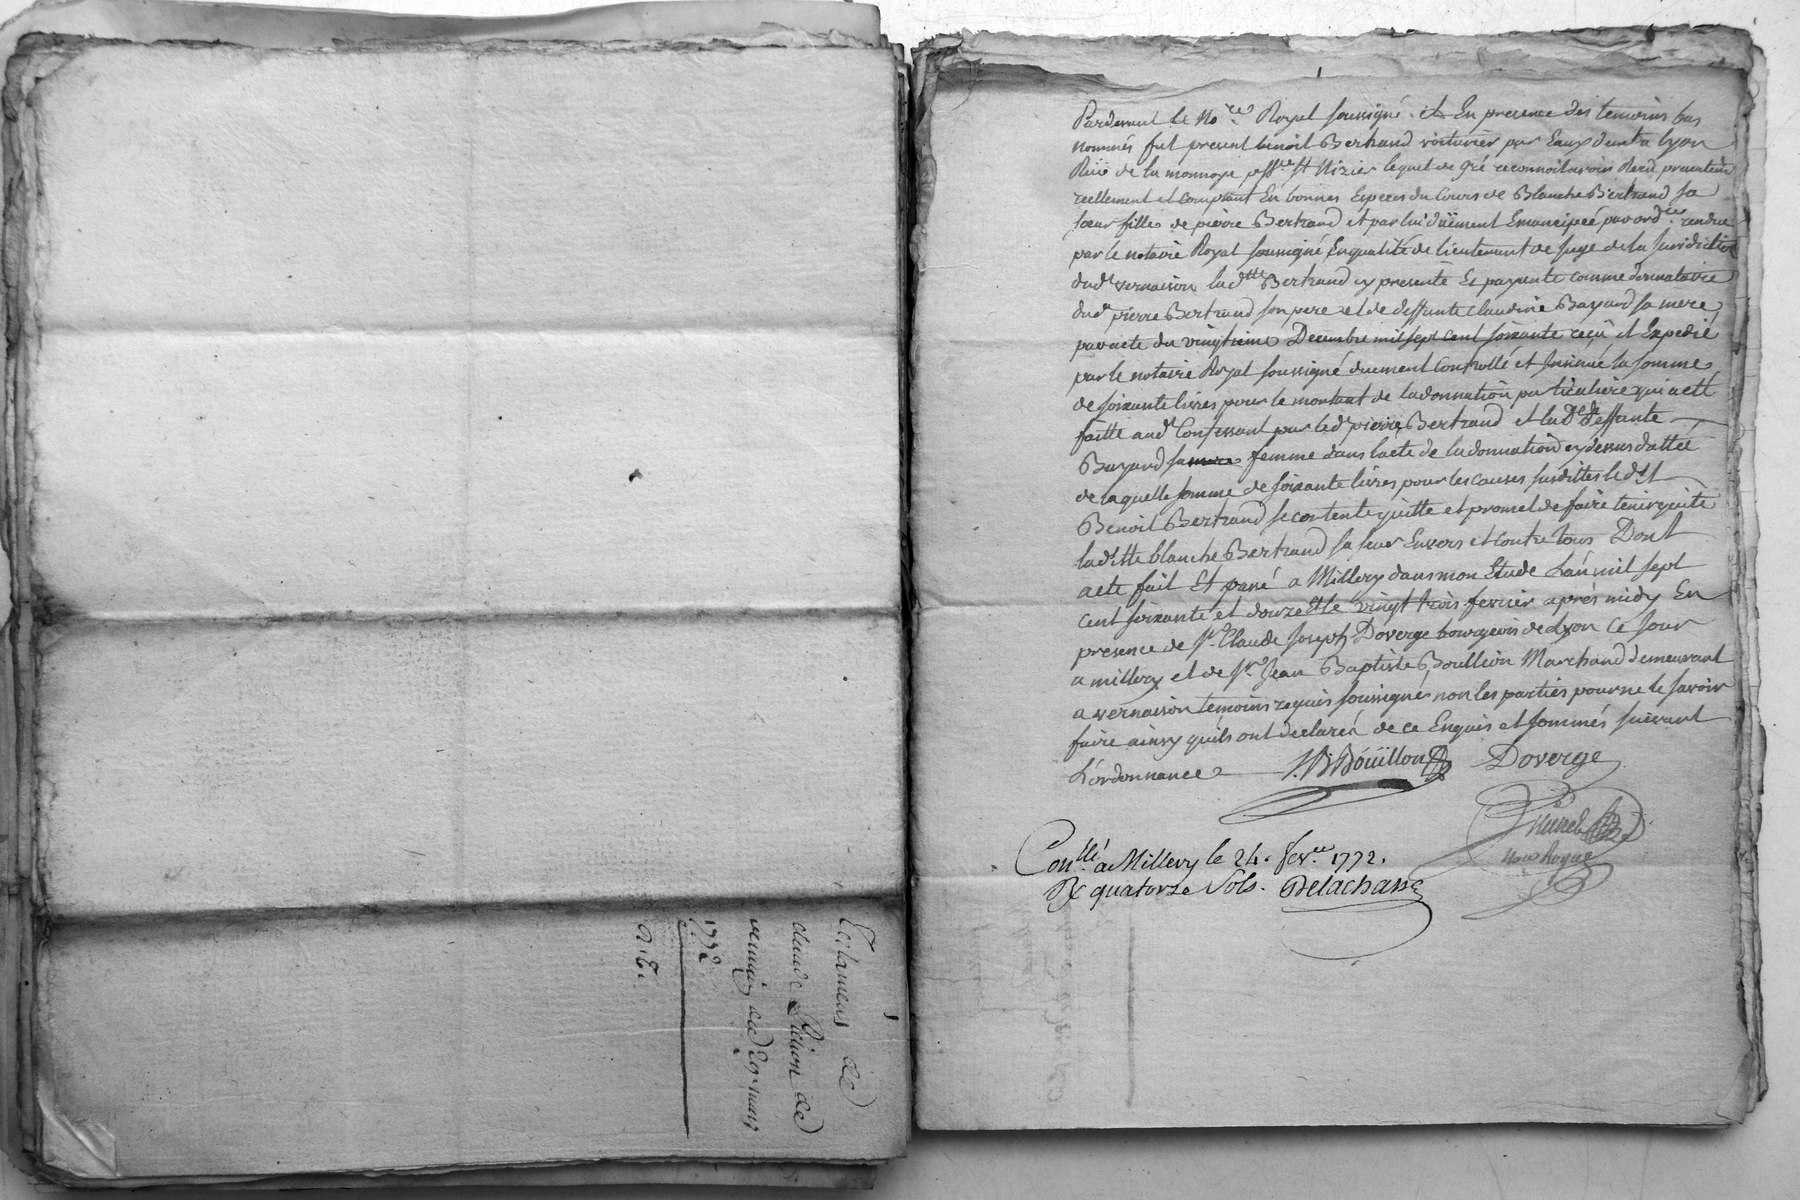 Testament de
claude Pinon de
vernaison du 20e mars
1772
Pardevant le No.re Royal soussigné et En presence des temoins bas
nommés fut present benoit Bertrand voiturier par Eaux demt a lyon
Rüe de la monnoye psse st Nizier lequel de gré reconnoit avoir Receu presentement
reellement et comptant En bonnes Especes du Cours de Blanche Bertrand sa
sœur fille de pierre Bertrand et par lui düement Emancipeé par ordce rendue
par le notaire Royal soussigné En qualité de lieutenant de juge de la Juridiction
dud vernaison lad.tte Bertrand cy presente Et payante comme donnataire
dud pierre Bertrand son pere et de deffunte claudine Bayard sa mere
par acte du vingtieme Decembre mil sept cent soixante receu et Expedié
par le notaire Royal soussigné duement Controllé et Insinué la somme
de soixante livres pour le montant de la donnation particuliere qui a eté
faitte aud Confessant par led pierre Bertrand et lad deffunte
Bayard sa mere femme dans lacte de la donnation cy dessus datteé
de laquelle somme de soixante livres pour les causes susdittes le dst
Benoit Bertrand se contente quitte et promet de faire tenir quitte
laditte blanche Bertrand sa seur Envers et contre tous Dont
acte fait Et passé a Millery dans mon Etude L'an mil sept
cent soixante et douze Et le vingt trois fevrier apres midy En
presence de sr. Claude Joseph Doverge bourgeois de Lyon ce jour
a millery et de sr. Jean Baptiste Boullion Marchand demeurant
a vernaison temoins requis soussignés non les parties pour ne le savoir
faire ainsy quils ont declarés de ce Enquis et sommés suivant
L'ordonnance J.B Bóüillon Doverge
Brunel
No.re Royal
Con.llé a Millery le 24. fev.er 1772.
Rx quatorze sols. Delachasse